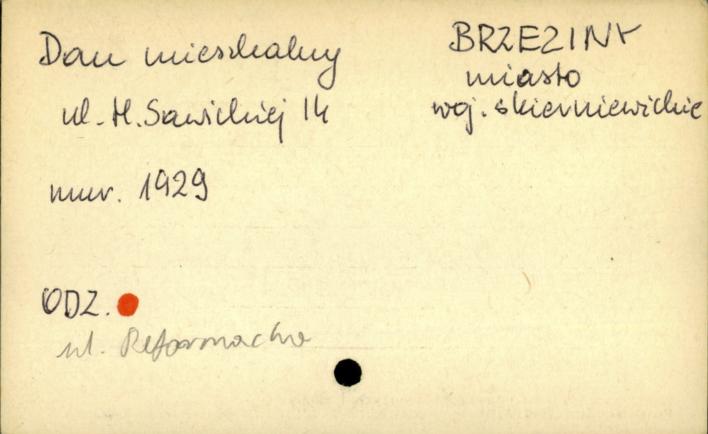 Dom mieszkalny
ul. H. Sawickiej 14
mur. 1929
BRZEZINY
miasto
woj. skierniewickie
ODZ.
ul. Reformacka